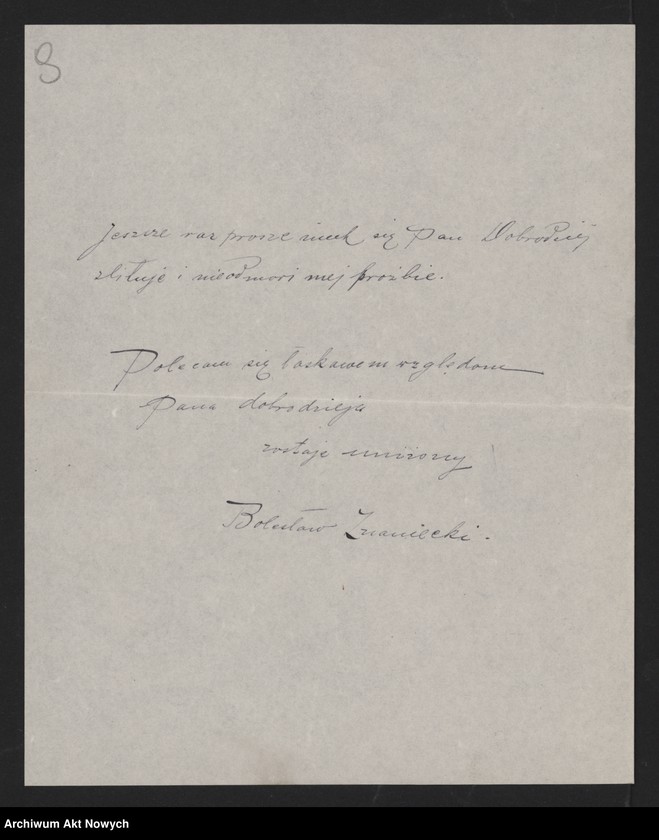 8
Jeszcze raz prosze niech się Pan Dobrodziej
zlituje i nieodmówi mej prożbie.
Polecam się łaskawem względom
Pana dobrodzieja
zostaje uniżony
Bolesław Znaniecki.
Archiwum Akt Nowych